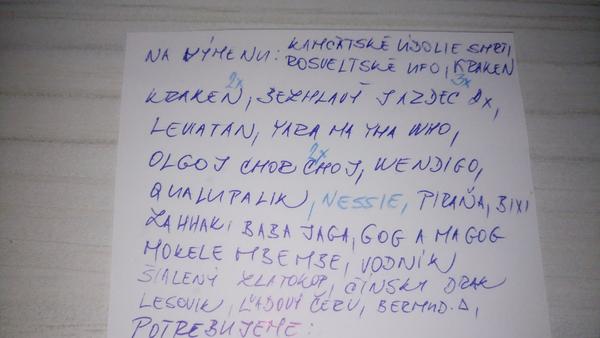 NA VÝMENU: KAMČATSKÉ ÚDOLIE SMRTI,
ROSVELTSKÉ UFO, KRAKEN
2x 3x
KRAKEN, BEZHLAVÝ JAZDEC 2x,
LEVIATAN, YARA MA YHA WHO,
2x
OLGOJ CHORCHOJ, WENDIGO,
QUALUPALIK, NESSIE, PIRAŇA, BIXI
ZAHHAK, BABA JAGA, GOG A MAGOG
MOKELE MBEMBE, VODNÍK
ŠIALENÝ ZLATOKOP, ČÍNSKY DRAK
LESOVIK, ĽADOVÝ ČERV, BERMUD. Δ,
POTREBUJEME: